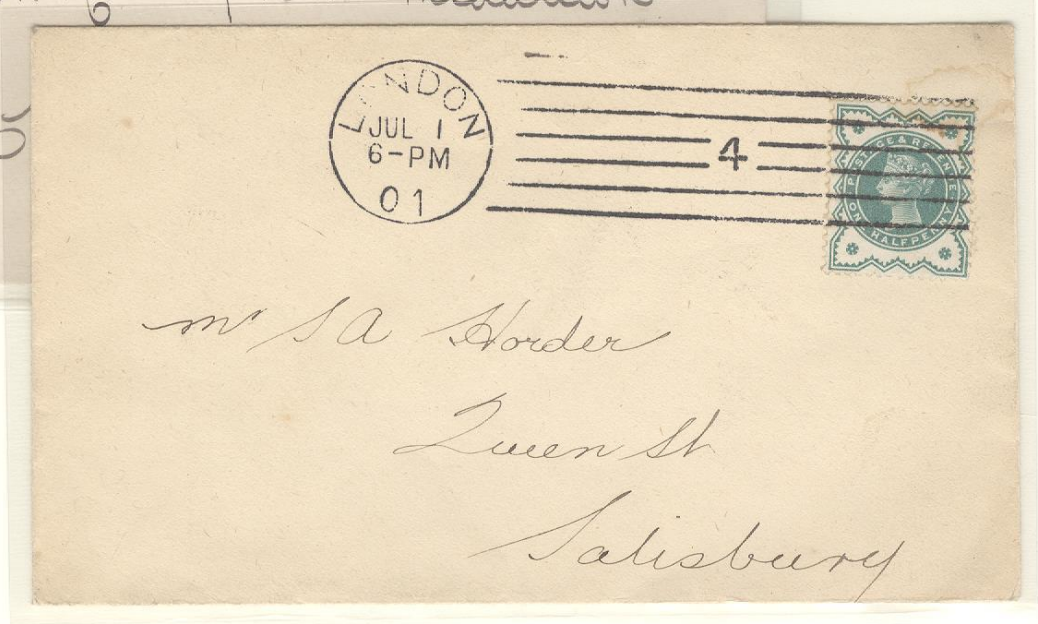 LONDON
JUL 1
6-PM
01
4
POSTAGE & REVENUE
HALFPENNY
Mr S A Horder
Queen St
Salisbury